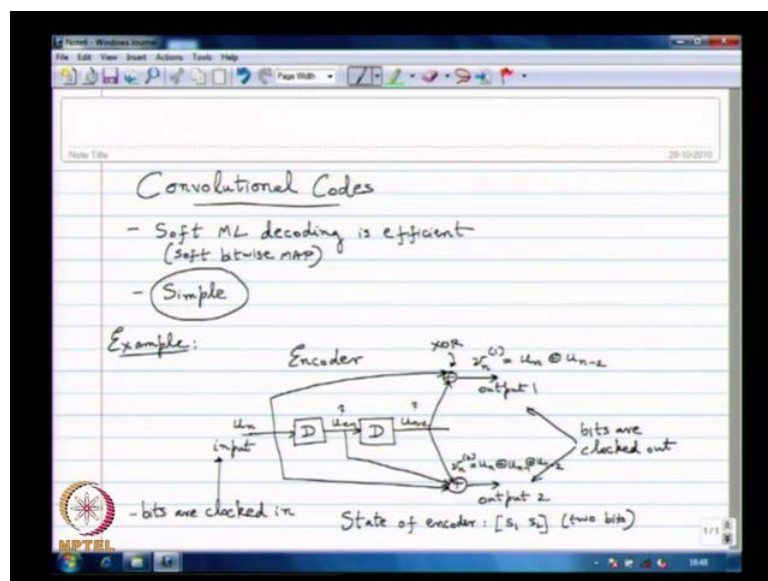 Note6 - Windows Journal
File Edit View Insert Actions Tools Help
Page Width
Note Title
29-10-2010
Convolutional Codes
- Soft ML decoding is efficient
(soft bitwise MAP)
- Simple
Example:
Encoder
XOR
v_n^(1) = u_n ⊕ u_{n-2}
output 1
u_n
input
D
u_{n-1}
D
u_{n-2}
bits are
clocked out
v_n^(2) = u_n ⊕ u_{n-1} ⊕ u_{n-2}
output 2
- bits are clocked in
State of encoder : [s₁ s₂] (two bits)
NPTEL
1/1
16:48